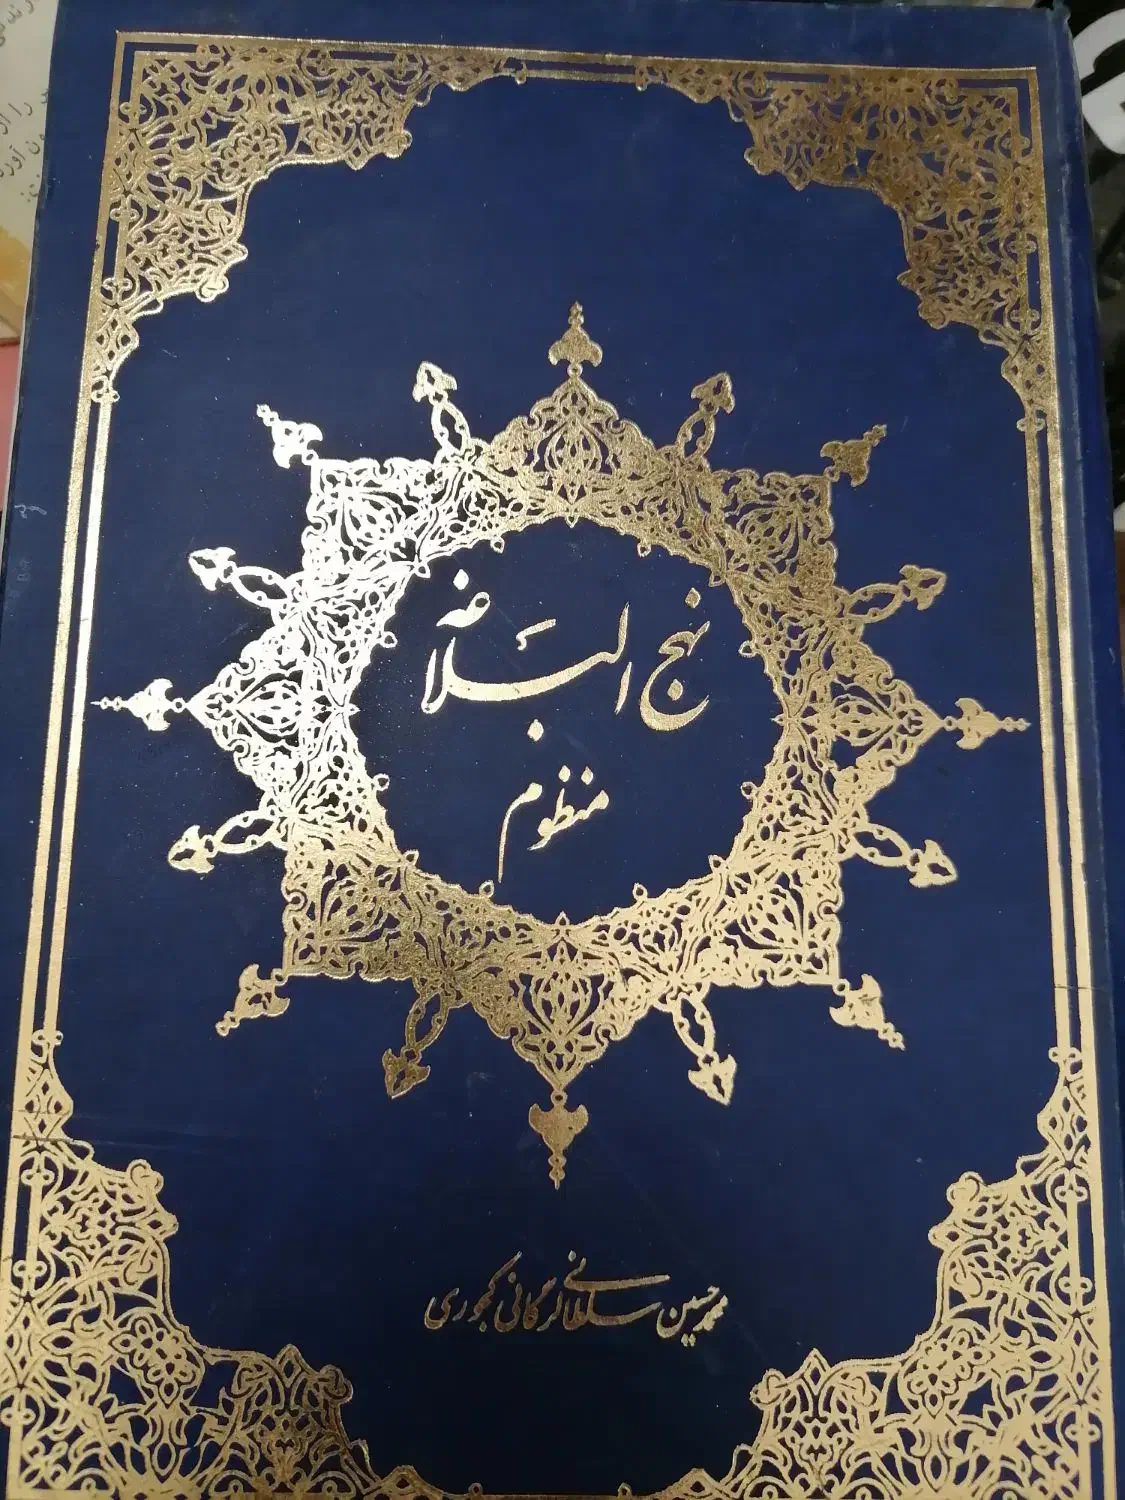 نهج البلاغه
منظوم
محمد حسین سلطانی لرگانی کجوری
را از